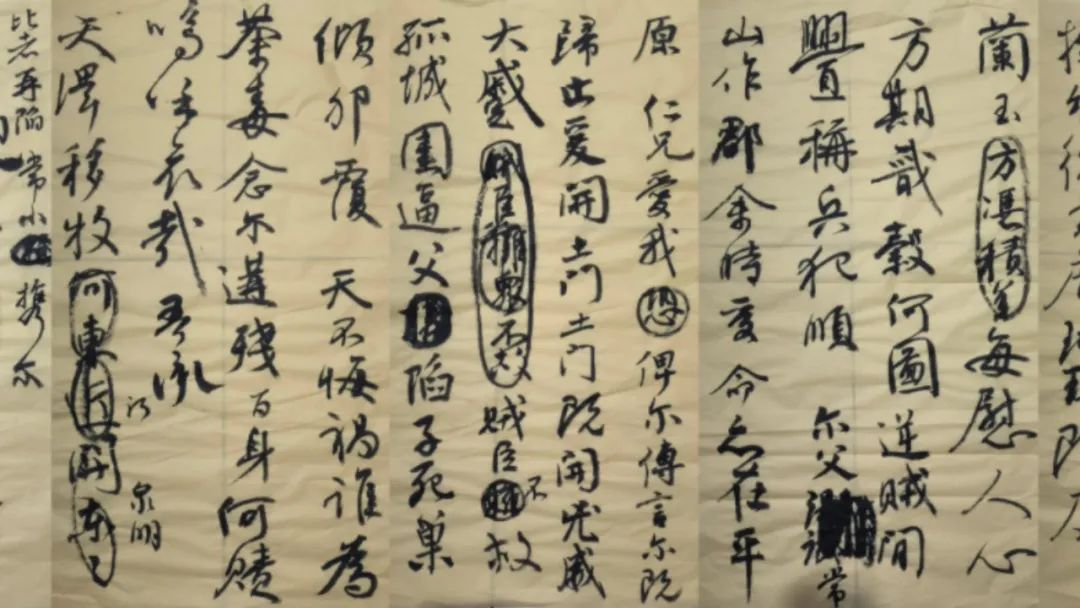 蘭玉方憑積善每慰人心
方期戩穀何圖逆賊閒
舋稱兵犯順 尔父 常
山作郡余時受命亦在平
原 仁兄愛我恐俾尔傳言尔既
歸止爰開土門土门既開兇威
大蹙賊臣擁衆不救賊臣不救
孤城圍逼父陷子死巢
傾卵覆 天不悔禍誰為
荼毒念尔遘殘百身何贖
嗚呼哀哉 吾承
天澤移牧河東近
泉明
比者再陷常 携尔